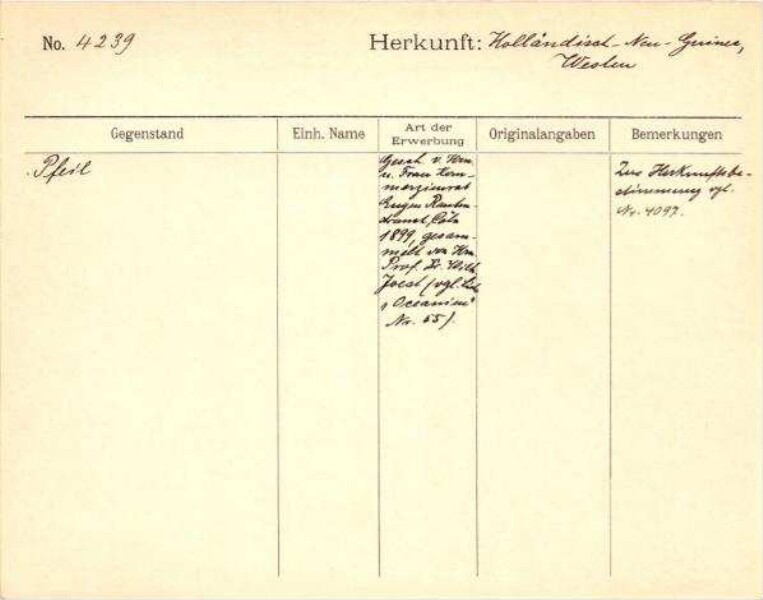 No. 4239
Herkunft: Holländisch-Neu-Guinea,
Westen
Gegenstand
Einh. Name
Art der
Erwerbung
Originalangaben
Bemerkungen
Pfeil
Gesch. v. Hrn.
u. Frau Kom-
merzienrat
Eugen Rauten-
strauch, Cöln
1899, gesam-
melt von Hrn.
Prof. Dr. Wilh.
Joest (vgl. List
"Oceanien"
Nr. 55).
Zur Herkunftsbe-
stimmung vgl.
Nr. 4097.